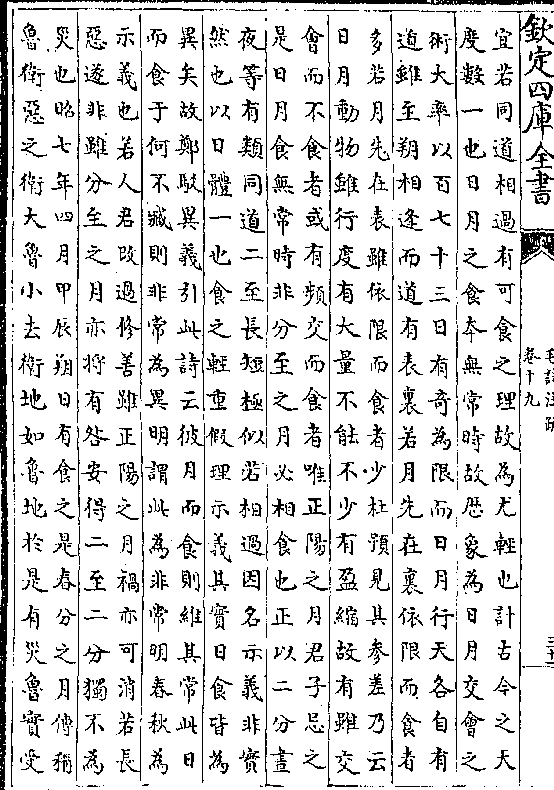 欽定四庫全書
毛詩注疏
卷十九
宜若同道相過有可食之理故為尤輕也計古今之天
度數一也日月之食本無常時故厯象為日月交會之
術大率以百七十三日有奇為限而日月行天各自有
道雖至朔相逢而道有表裏若月先在裏依限而食者
多若月先在表雖依限而食者少杜預見其參差乃云
日月動物雖行度有大量不能不少有盈縮故有雖交
會而不食者或有頻交而食者唯正陽之月君子忌之
是日月食無常時非分至之月必相食也正以二分晝
夜等有類同道二至長短極似若相過因名示義非實
然也以日體一也食之輕重假理示義其實日食皆為
異矣故鄭駁異義引此詩云彼月而食則維其常此日
而食于何不臧則非常為異明謂此為非常明春秋為
示義也若人君改過修善雖正陽之月禍亦可消若長
惡遂非雖分至之月亦將有咎安得二至二分獨不為
災也昭七年四月甲辰朔日有食之是春分之月傳稱
魯衛惡之衛大魯小去衛地如魯地於是有災魯實受